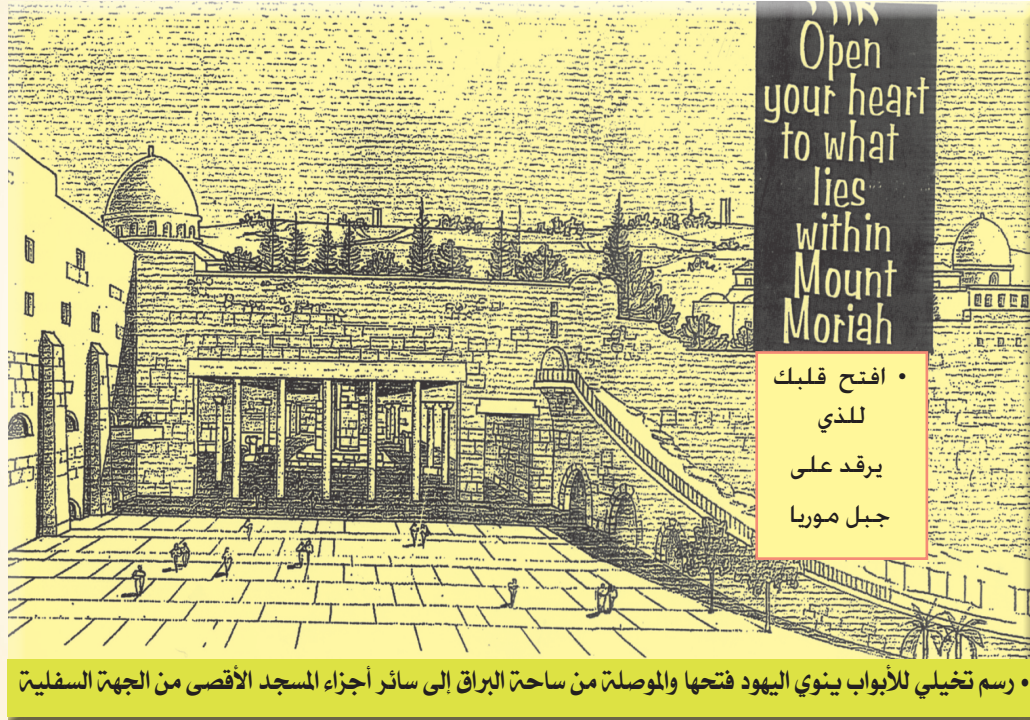 Open
your heart
to what
lies
within
Mount
Moriah
• افتح قلبك
للذي
يرقد على
جبل موريا
• رسم تخيلي للأبواب ينوي اليهود فتحها والموصلة من ساحة البراق إلى سائر أجزاء المسجد الأقصى من الجهة السفلية